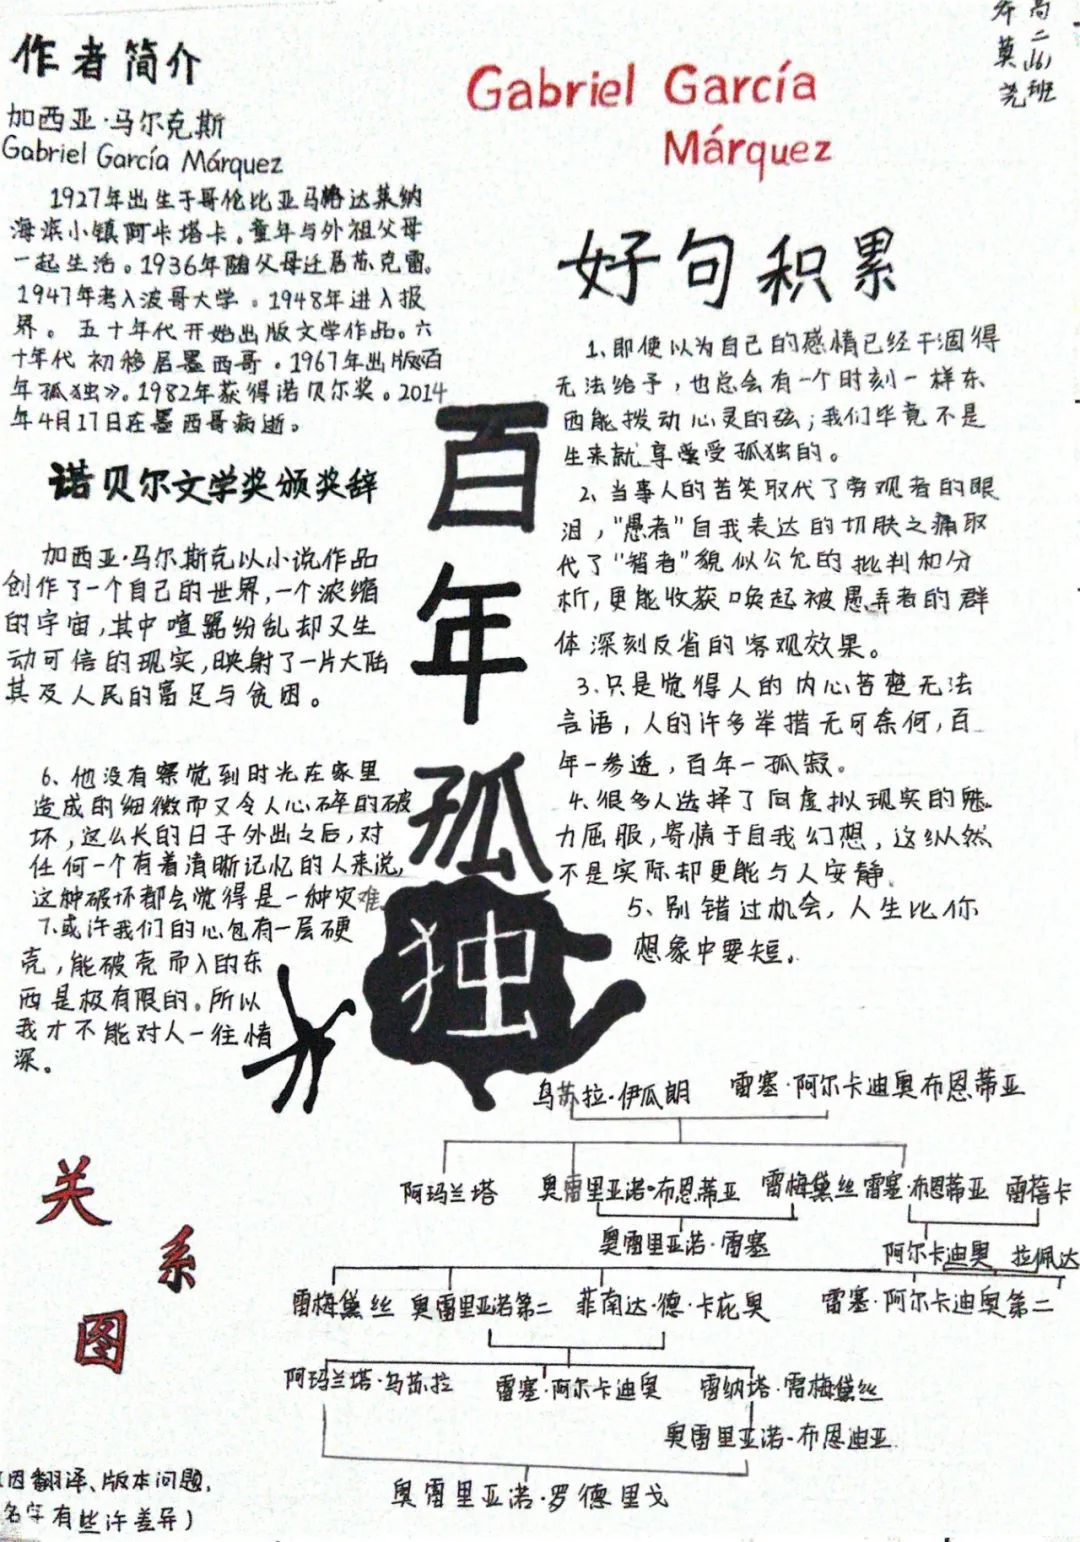 高二(6)班
乔莫尧
作者简介
加西亚·马尔克斯
Gabriel García Márquez
1927年出生于哥伦比亚马格达莱纳
海滨小镇阿卡塔卡。童年与外祖父母
一起生活。1936年随父母迁居苏克雷。
1947年考入波哥大学。1948年进入报
界。五十年代开始出版文学作品。六
十年代初移居墨西哥。1967年出版《百
年孤独》。1982年获得诺贝尔奖。2014
年4月17日在墨西哥病逝。
诺贝尔文学奖颁奖辞
加西亚·马尔斯克以小说作品
创作了一个自己的世界,一个浓缩
的宇宙,其中喧嚣纷乱却又生
动可信的现实,映射了一片大陆
其及人民的富足与贫困。
Gabriel García
Márquez
百年孤独
好句积累
1、即使以为自己的感情已经干涸得
无法给予,也总会有一个时刻一样东
西能拨动心灵的弦;我们毕竟不是
生来就享受孤独的。
2、当事人的苦笑取代了旁观者的眼
泪,"愚者"自我表达的切肤之痛取
代了"智者"貌似公允的批判和分
析,更能收获唤起被愚弄者的群
体深刻反省的客观效果。
3、只是觉得人的内心苦楚无法
言语,人的许多举措无可奈何,百
年一参透,百年一孤寂。
4、很多人选择了向虚拟现实的魅
力屈服,寄情于自我幻想,这纵然
不是实际却更能与人安静。
5、别错过机会,人生比你
想象中要短。
6、他没有察觉到时光在家里
造成的细微而又令人心碎的破
坏,这么长的日子外出之后,对
任何一个有着清晰记忆的人来说,
这种破坏都会觉得是一种灾难
7、或许我们的心包有一层硬
壳,能破壳而入的东
西是极有限的。所以
我才不能对人一往情
深。
关系图
乌苏拉·伊瓜朗 雷塞·阿尔卡迪奥布恩蒂亚
阿玛兰塔 奥雷里亚诺·布恩蒂亚 雷梅黛丝 雷塞·布恩蒂亚 雷蓓卡
奥雷里亚诺·雷塞 阿尔卡迪奥 拉佩达
雷梅黛丝 奥雷里亚诺第二 菲南达·德·卡庇奥 雷塞·阿尔卡迪奥第二
阿玛兰塔·乌苏拉 雷塞·阿尔卡迪奥 雷纳塔·雷梅黛丝
奥雷里亚诺·布恩迪亚
奥雷里亚诺·罗德里戈
(因翻译、版本问题,
名字有些许差异)